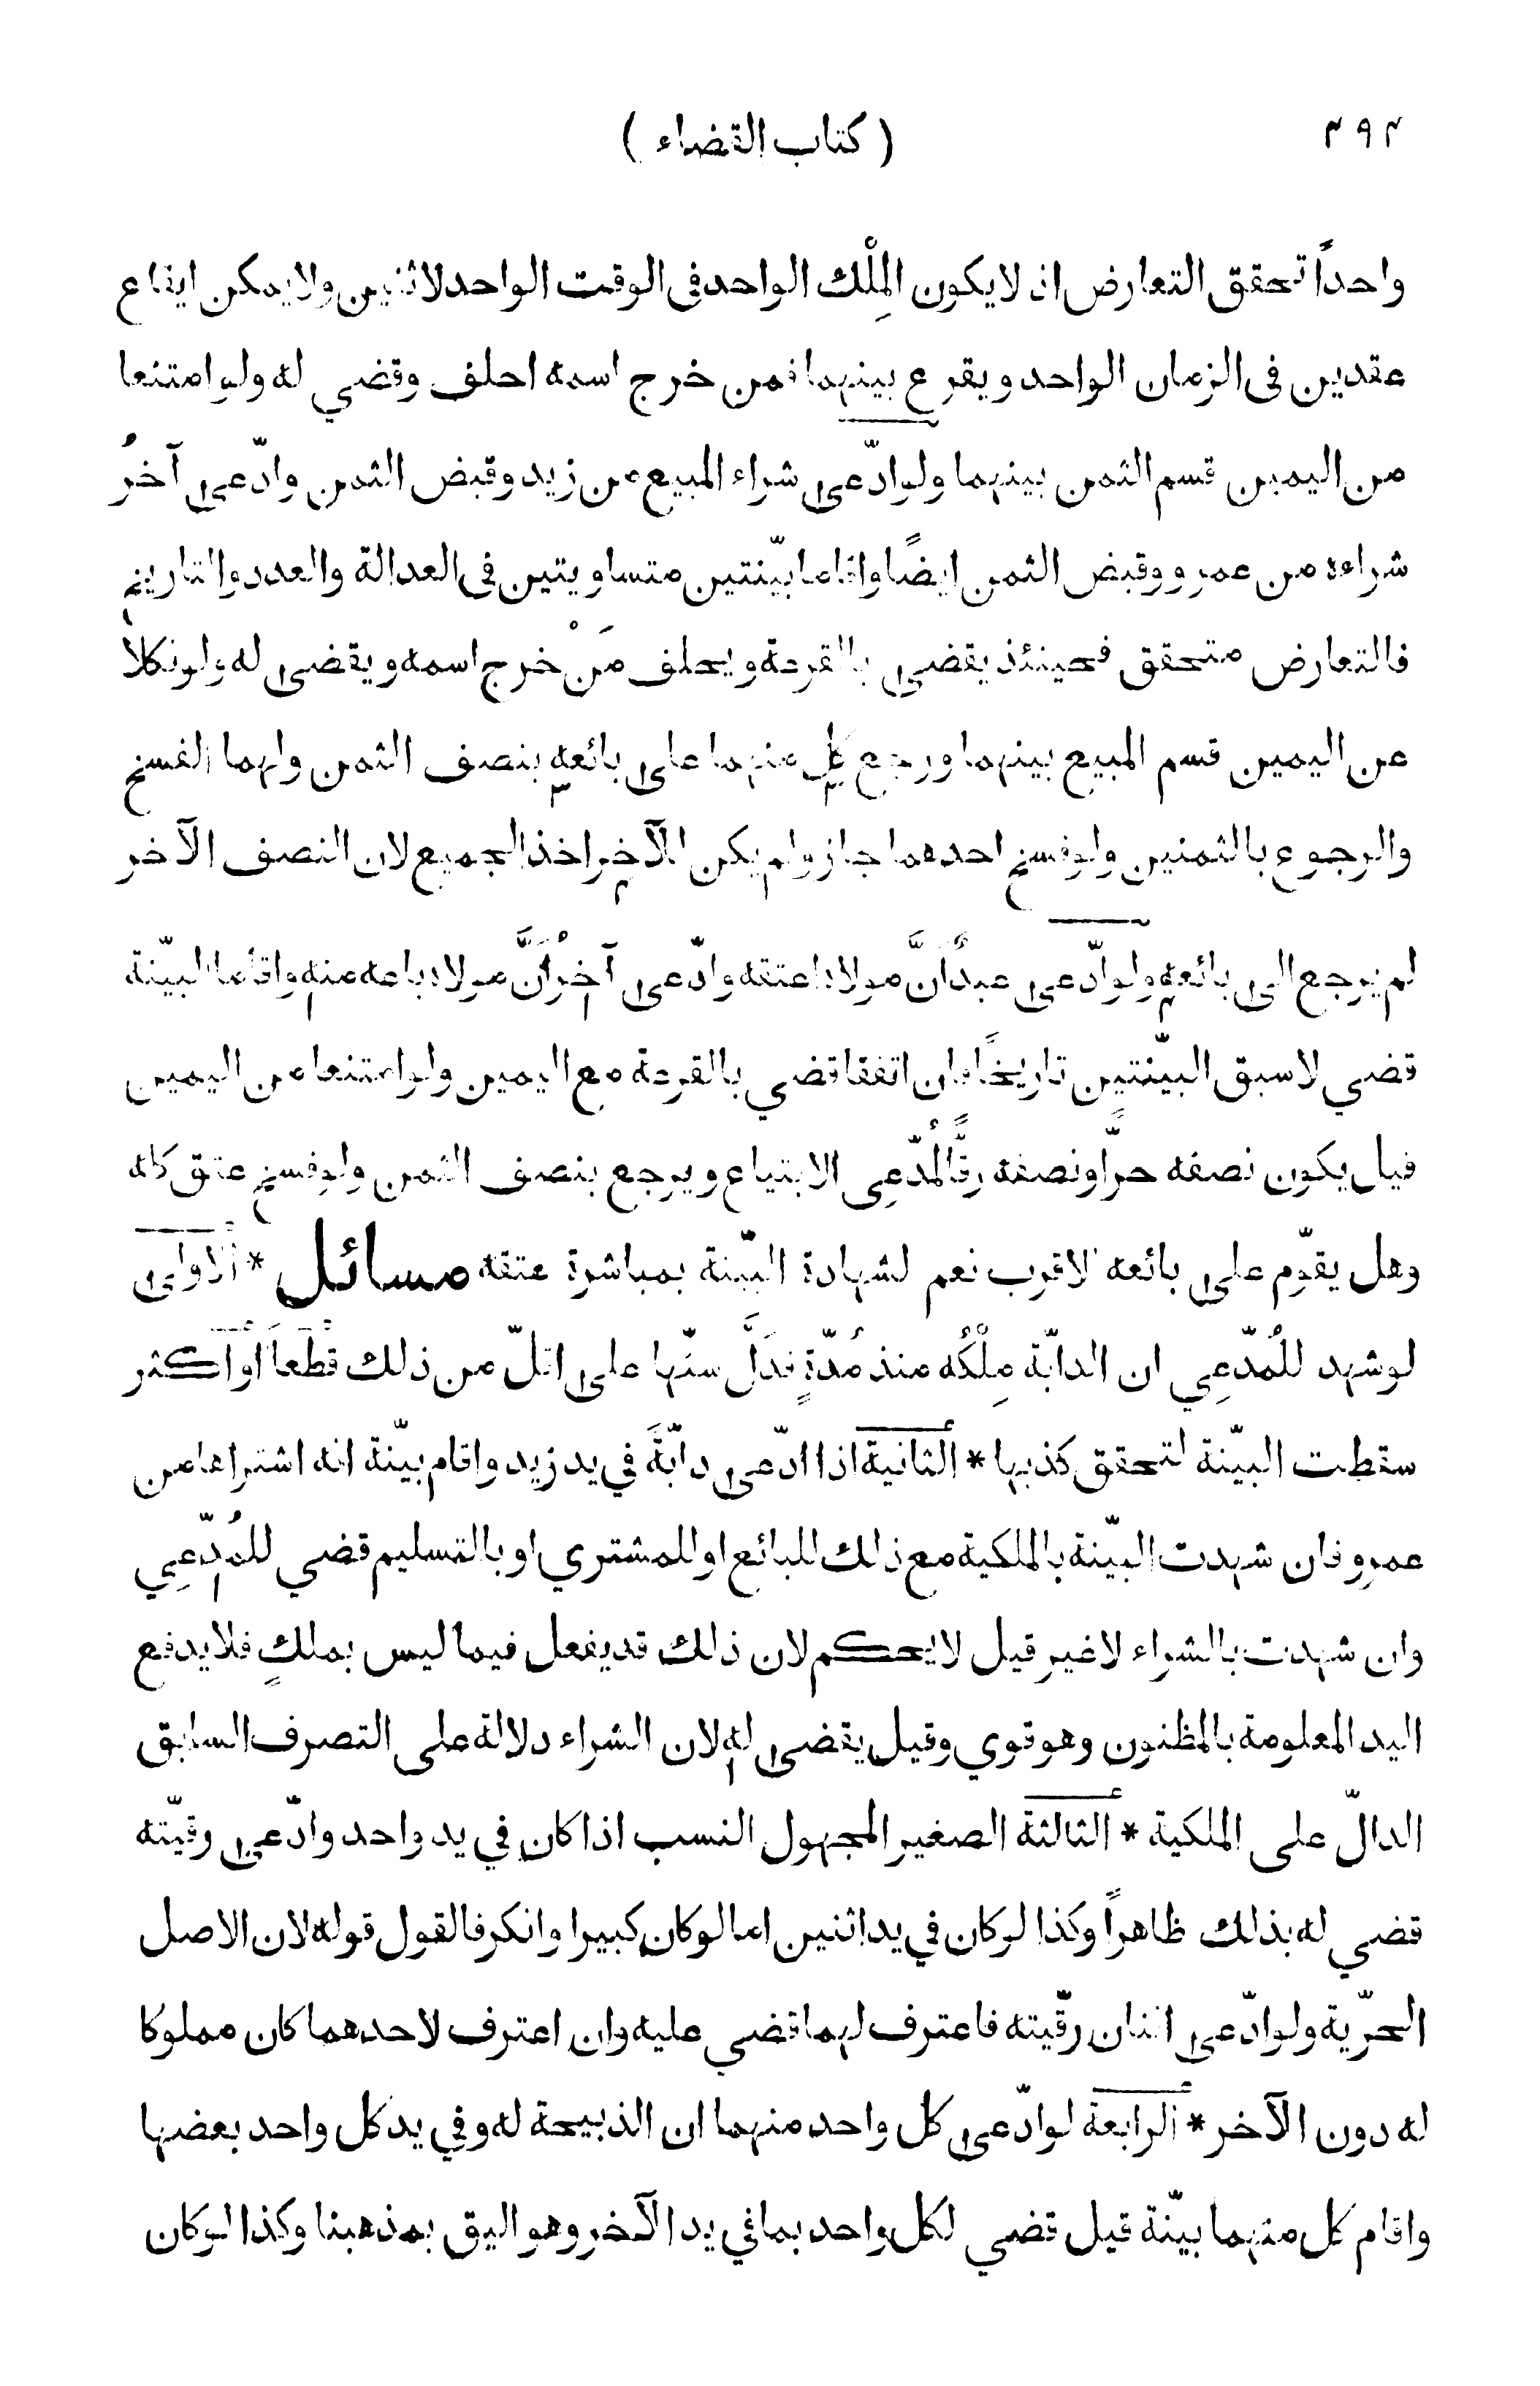 ٣٩٢ ( كتاب القضاء )
واحداً تحقق التعارض اذ لا يكون المِلْك الواحد في الوقت الواحد لاثنين ولا يمكن ايقاع
عقدين في الزمان الواحد ويقرع بينهما فمن خرج اسمه احلف وقضي له ولو امتنعا
من اليمين قسم الثمن بينهما ولو ادّعى شراء المبيع من زيد وقبض الثمن وادّعى آخرُ
شراءه من عمرو وقبض الثمن ايضًا واقاما بيّنتين متساويتين في العدالة والعدد والتاريخ
فالتعارض متحقق فحينئذ يقضى بالقرعة ويحلف مَنْ خرج اسمه ويقضى له ولو نكلا
عن اليمين قسم المبيع بينهما ورجع كل منهما على بائعه بنصف الثمن ولهما الفسخ
والرجوع بالثمنين ولو فسخ احدهما جاز ولم يكن للآخر اخذ الجميع لان النصف الآخر
لم يرجع الى بائعه ولو ادّعى عبدٌ أنَّ مولاه اعتقه وادّعى آخرُ أنَّ مولاه باعه منه واقاما البيّنة
قضي لاسبق البيّنتين تاريخًا فان اتفقا قضي بالقرعة مع اليمين ولو امتنعا من اليمين
قيل يكون نصفه حرًّا ونصفه رقًّا لمُدّعِي الابتياع ويرجع بنصف الثمن ولو فسخ عتق كله
وهل يقوّم على بائعه الاقرب نعم لشهادة البيّنة بمباشرة عتقه مسائل * الاولى
لو شهد للمُدّعِي ان الدابّة مِلْكُه منذ مُدّةٍ فدَلَّ سنّها على اقلّ من ذلك قطعاً او اكثر
سقطت البيّنة لتحقق كذبها * الثانية اذا ادّعى دابّةً في يد زيد واقام بيّنة انه اشتراها من
عمرو فان شهدت البيّنة بالملكية مع ذلك للبائع او للمشتري او بالتسليم قضي للمُدّعِي
وان شهدت بالشراء لا غير قيل لا يحكم لان ذلك قد يفعل فيما ليس بملكٍ فلا يدفع
اليد المعلومة بالمظنون وهو قوي وقيل يقضى له لان الشراء دلالة على التصرف السابق
الدالّ على الملكية * الثالثة الصغير المجهول النسب اذا كان في يد واحد وادّعى رقيّته
قضي له بذلك ظاهراً وكذا لو كان في يد اثنين اما لو كان كبيرا وانكر فالقول قوله لان الاصل
الحرّية ولو ادّعى اثنان رقّيته فاعترف لهما قضي عليه وان اعترف لاحدهما كان مملوكا
له دون الآخر * الرابعة لو ادّعى كل واحد منهما ان الذبيحة له وفي يد كل واحد بعضها
واقام كل منهما بيّنة قيل قضي لكل واحد بما في يد الآخر وهو اليق بمذهبنا وكذا لو كان